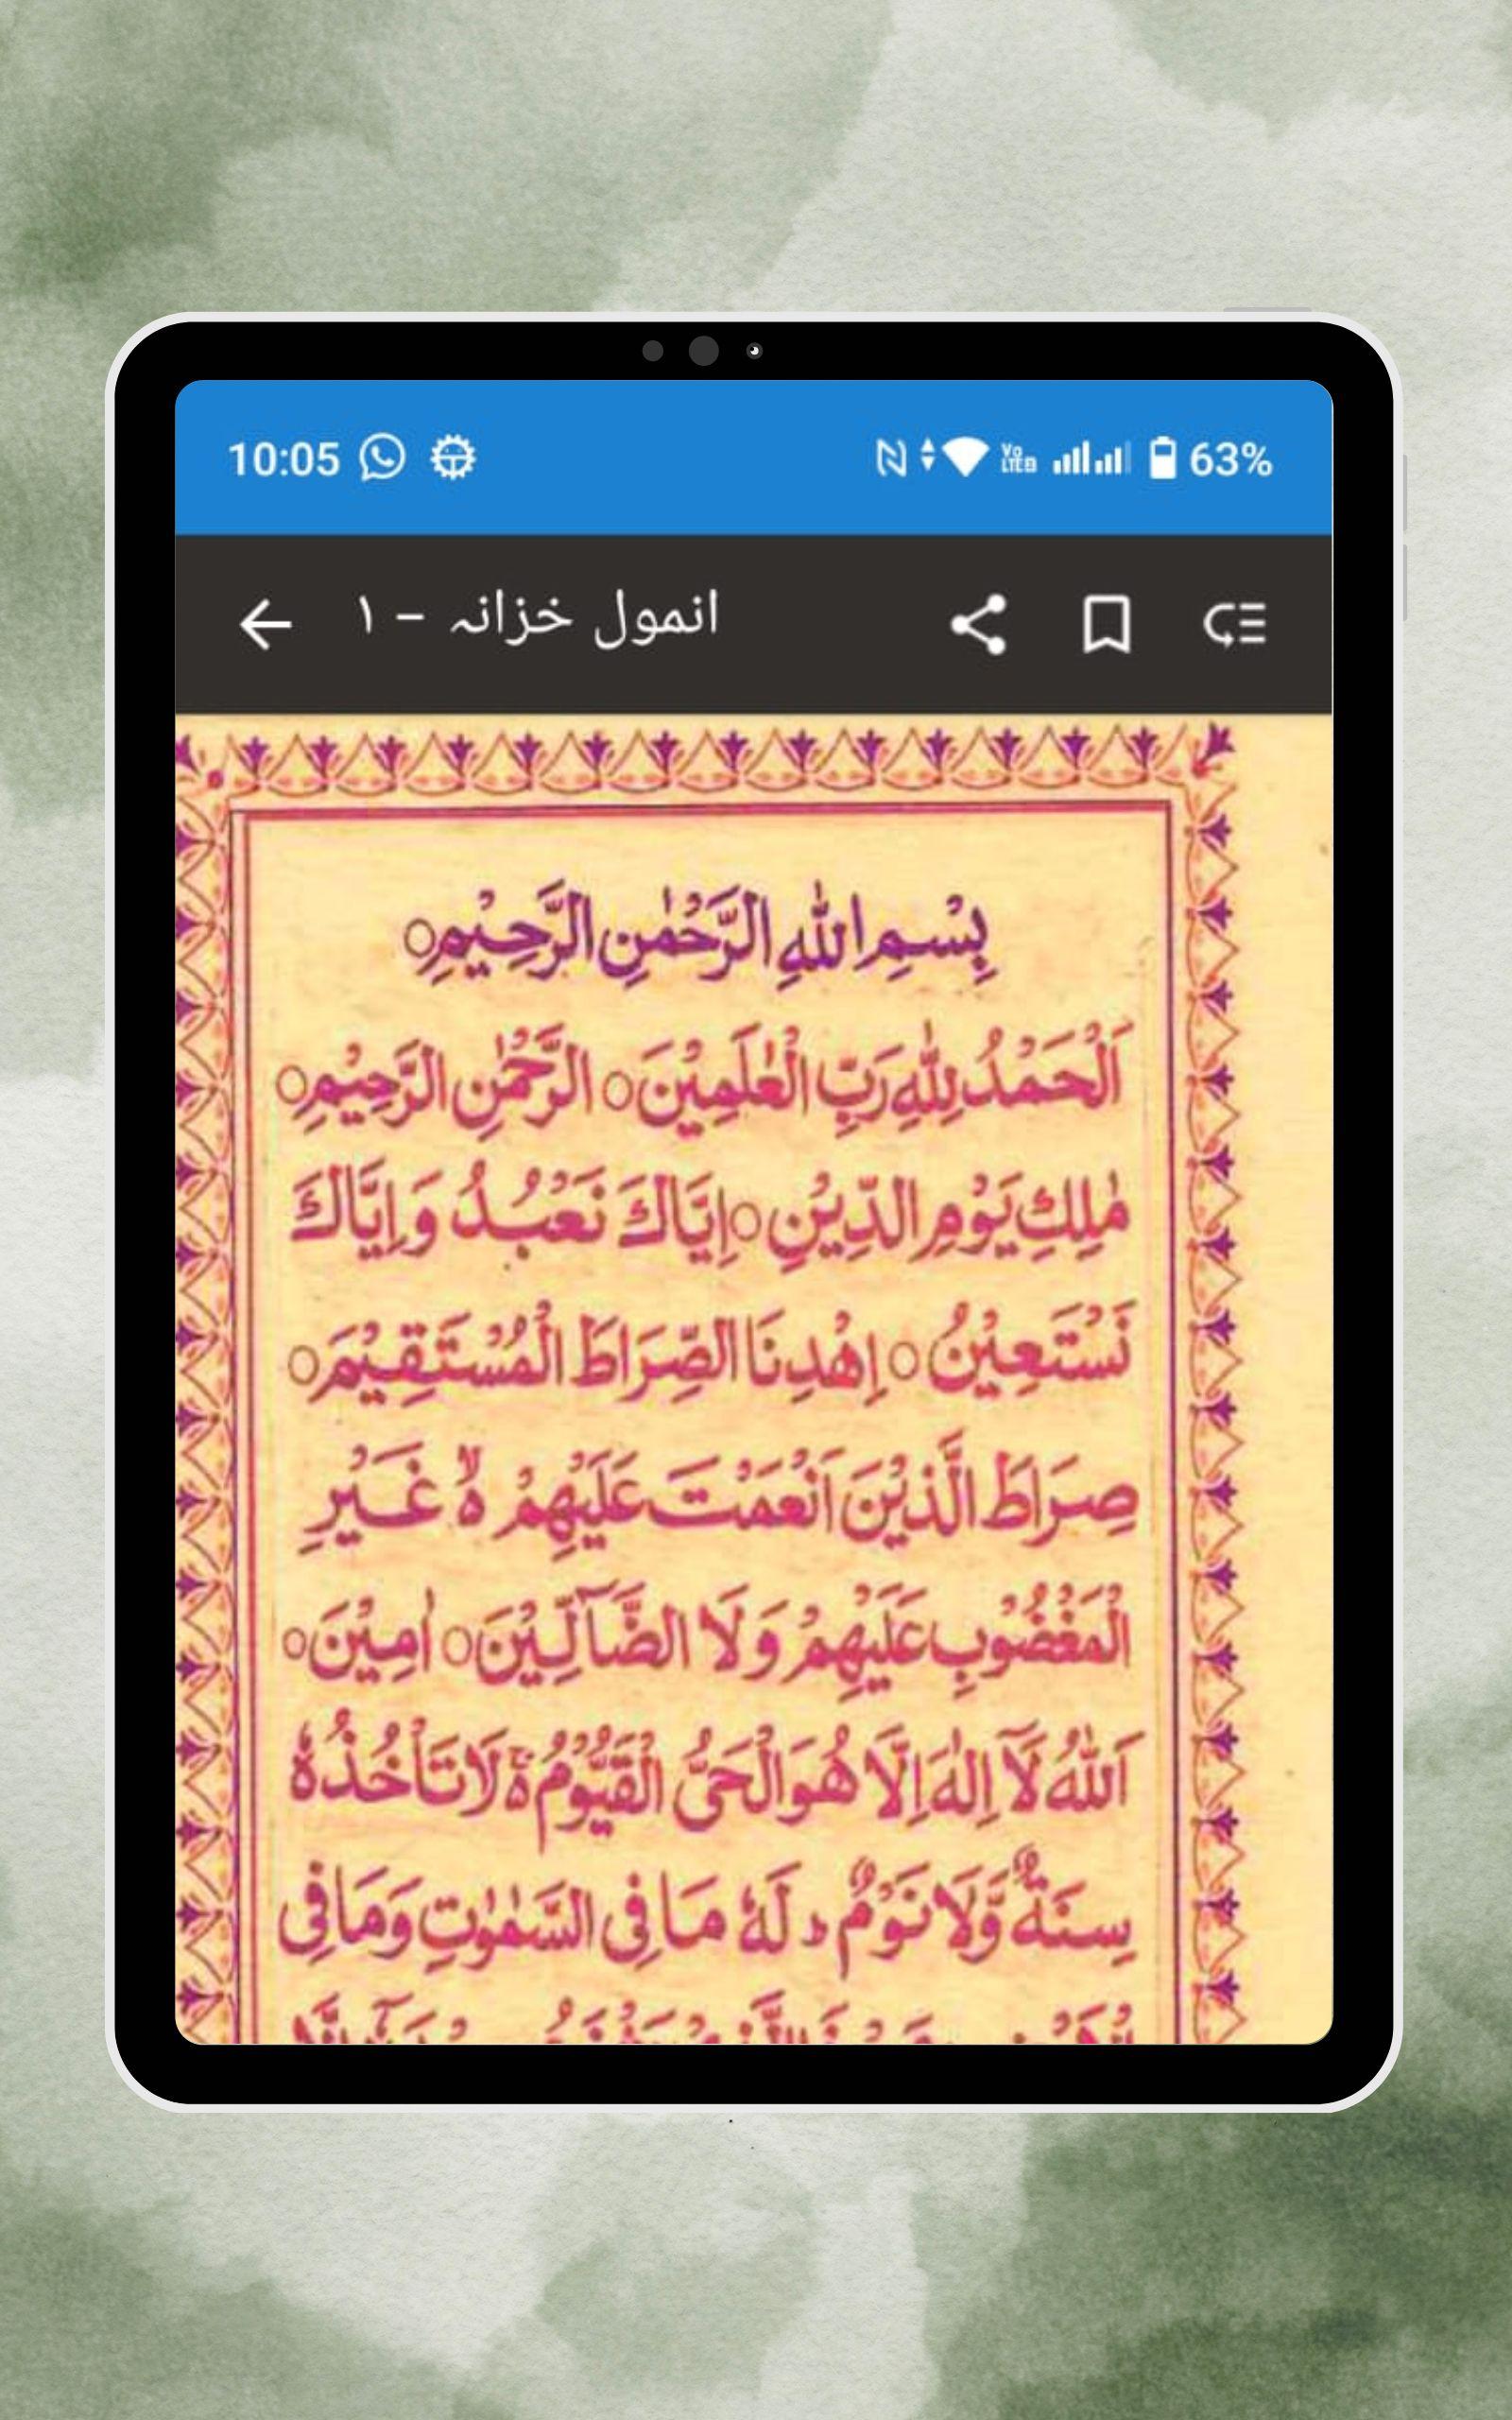 10:05 63%
انمول خزانہ – ۱
بِسْمِ اللهِ الرَّحْمٰنِ الرَّحِيْمِ○
اَلْحَمْدُ لِلّٰهِ رَبِّ الْعٰلَمِيْنَ○ الرَّحْمٰنِ الرَّحِيْمِ○
مٰلِكِ يَوْمِ الدِّيْنِ○ اِيَّاكَ نَعْبُدُ وَاِيَّاكَ
نَسْتَعِيْنُ○ اِهْدِنَا الصِّرَاطَ الْمُسْتَقِيْمَ○
صِرَاطَ الَّذِيْنَ اَنْعَمْتَ عَلَيْهِمْ ۙ۬ غَيْرِ
الْمَغْضُوْبِ عَلَيْهِمْ وَلَا الضَّآلِّيْنَ○ اٰمِيْنَ○
اَللهُ لَآ اِلٰهَ اِلَّا هُوَ الْحَيُّ الْقَيُّوْمُ ۚ۬ لَا تَاْخُذُهٗ
سِنَةٌ وَّلَا نَوْمٌ ؕ لَهٗ مَا فِی السَّمٰوٰتِ وَمَا فِی